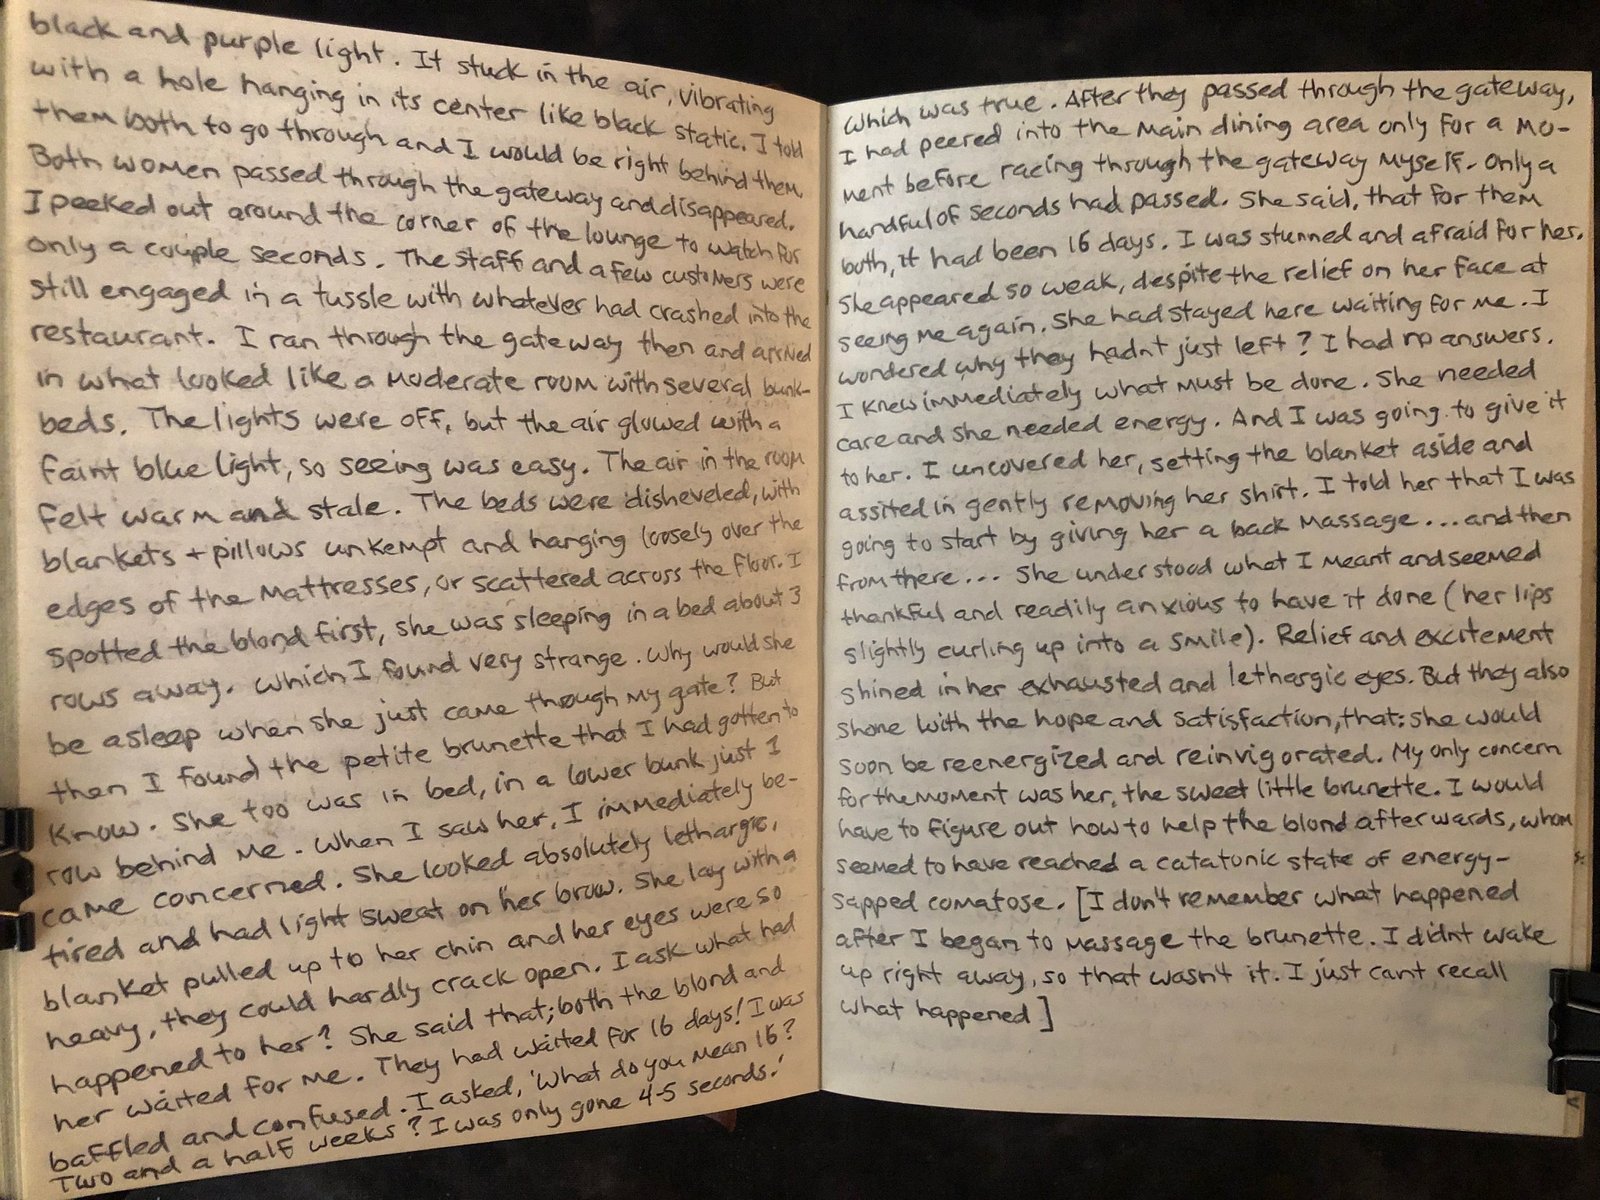 black and purple light. It stuck in the air, vibrating
with a hole hanging in its center like black static. I told
them both to go through and I would be right behind them.
Both women passed through the gateway and disappeared.
I peeked out around the corner of the lounge to watch for
only a couple seconds. The staff and a few customers were
still engaged in a tussle with whatever had crashed into the
restaurant. I ran through the gateway then and arrived
in what looked like a moderate room with several bunk-
beds. The lights were off, but the air glowed with a
faint blue light, so seeing was easy. The air in the room
felt warm and stale. The beds were disheveled, with
blankets + pillows unkempt and hanging loosely over the
edges of the mattresses, or scattered across the floor. I
spotted the blond first, she was sleeping in a bed about 3
rows away. Which I found very strange. Why would she
be asleep when she just came through my gate? But
then I found the petite brunette that I had gotten to
know. She too was in bed, in a lower bunk just 1
row behind me. When I saw her, I immediately be-
came concerned. She looked absolutely lethargic,
tired and had light sweat on her brow. She lay with a
blanket pulled up to her chin and her eyes were so
heavy, they could hardly crack open. I ask what had
happened to her? She said that; both the blond and
her waited for me. They had waited for 16 days! I was
baffled and confused. I asked, 'What do you mean 16?
Two and a half weeks? I was only gone 4-5 seconds.'
which was true. After they passed through the gateway,
I had peered into the main dining area only for a mo-
ment before racing through the gateway myself. Only a
handful of seconds had passed. She said, that for them
both, it had been 16 days. I was stunned and afraid for her.
She appeared so weak, despite the relief on her face at
seeing me again. She had stayed here waiting for me. I
wondered why they hadnt just left? I had no answers.
I knew immediately what must be done. She needed
care and she needed energy. And I was going to give it
to her. I uncovered her, setting the blanket aside and
assited in gently removing her shirt. I told her that I was
going to start by giving her a back massage... and then
from there... She understood what I meant and seemed
thankful and readily anxious to have it done (her lips
slightly curling up into a smile). Relief and excitement
shined in her exhausted and lethargic eyes. But they also
shone with the hope and satisfaction, that; she would
soon be reenergized and reinvigorated. My only concern
for the moment was her, the sweet little brunette. I would
have to figure out how to help the blond afterwards, whom
seemed to have reached a catatonic state of energy-
sapped comatose. [I don't remember what happened
after I began to massage the brunette. I didnt wake
up right away, so that wasn't it. I just cant recall
what happened]